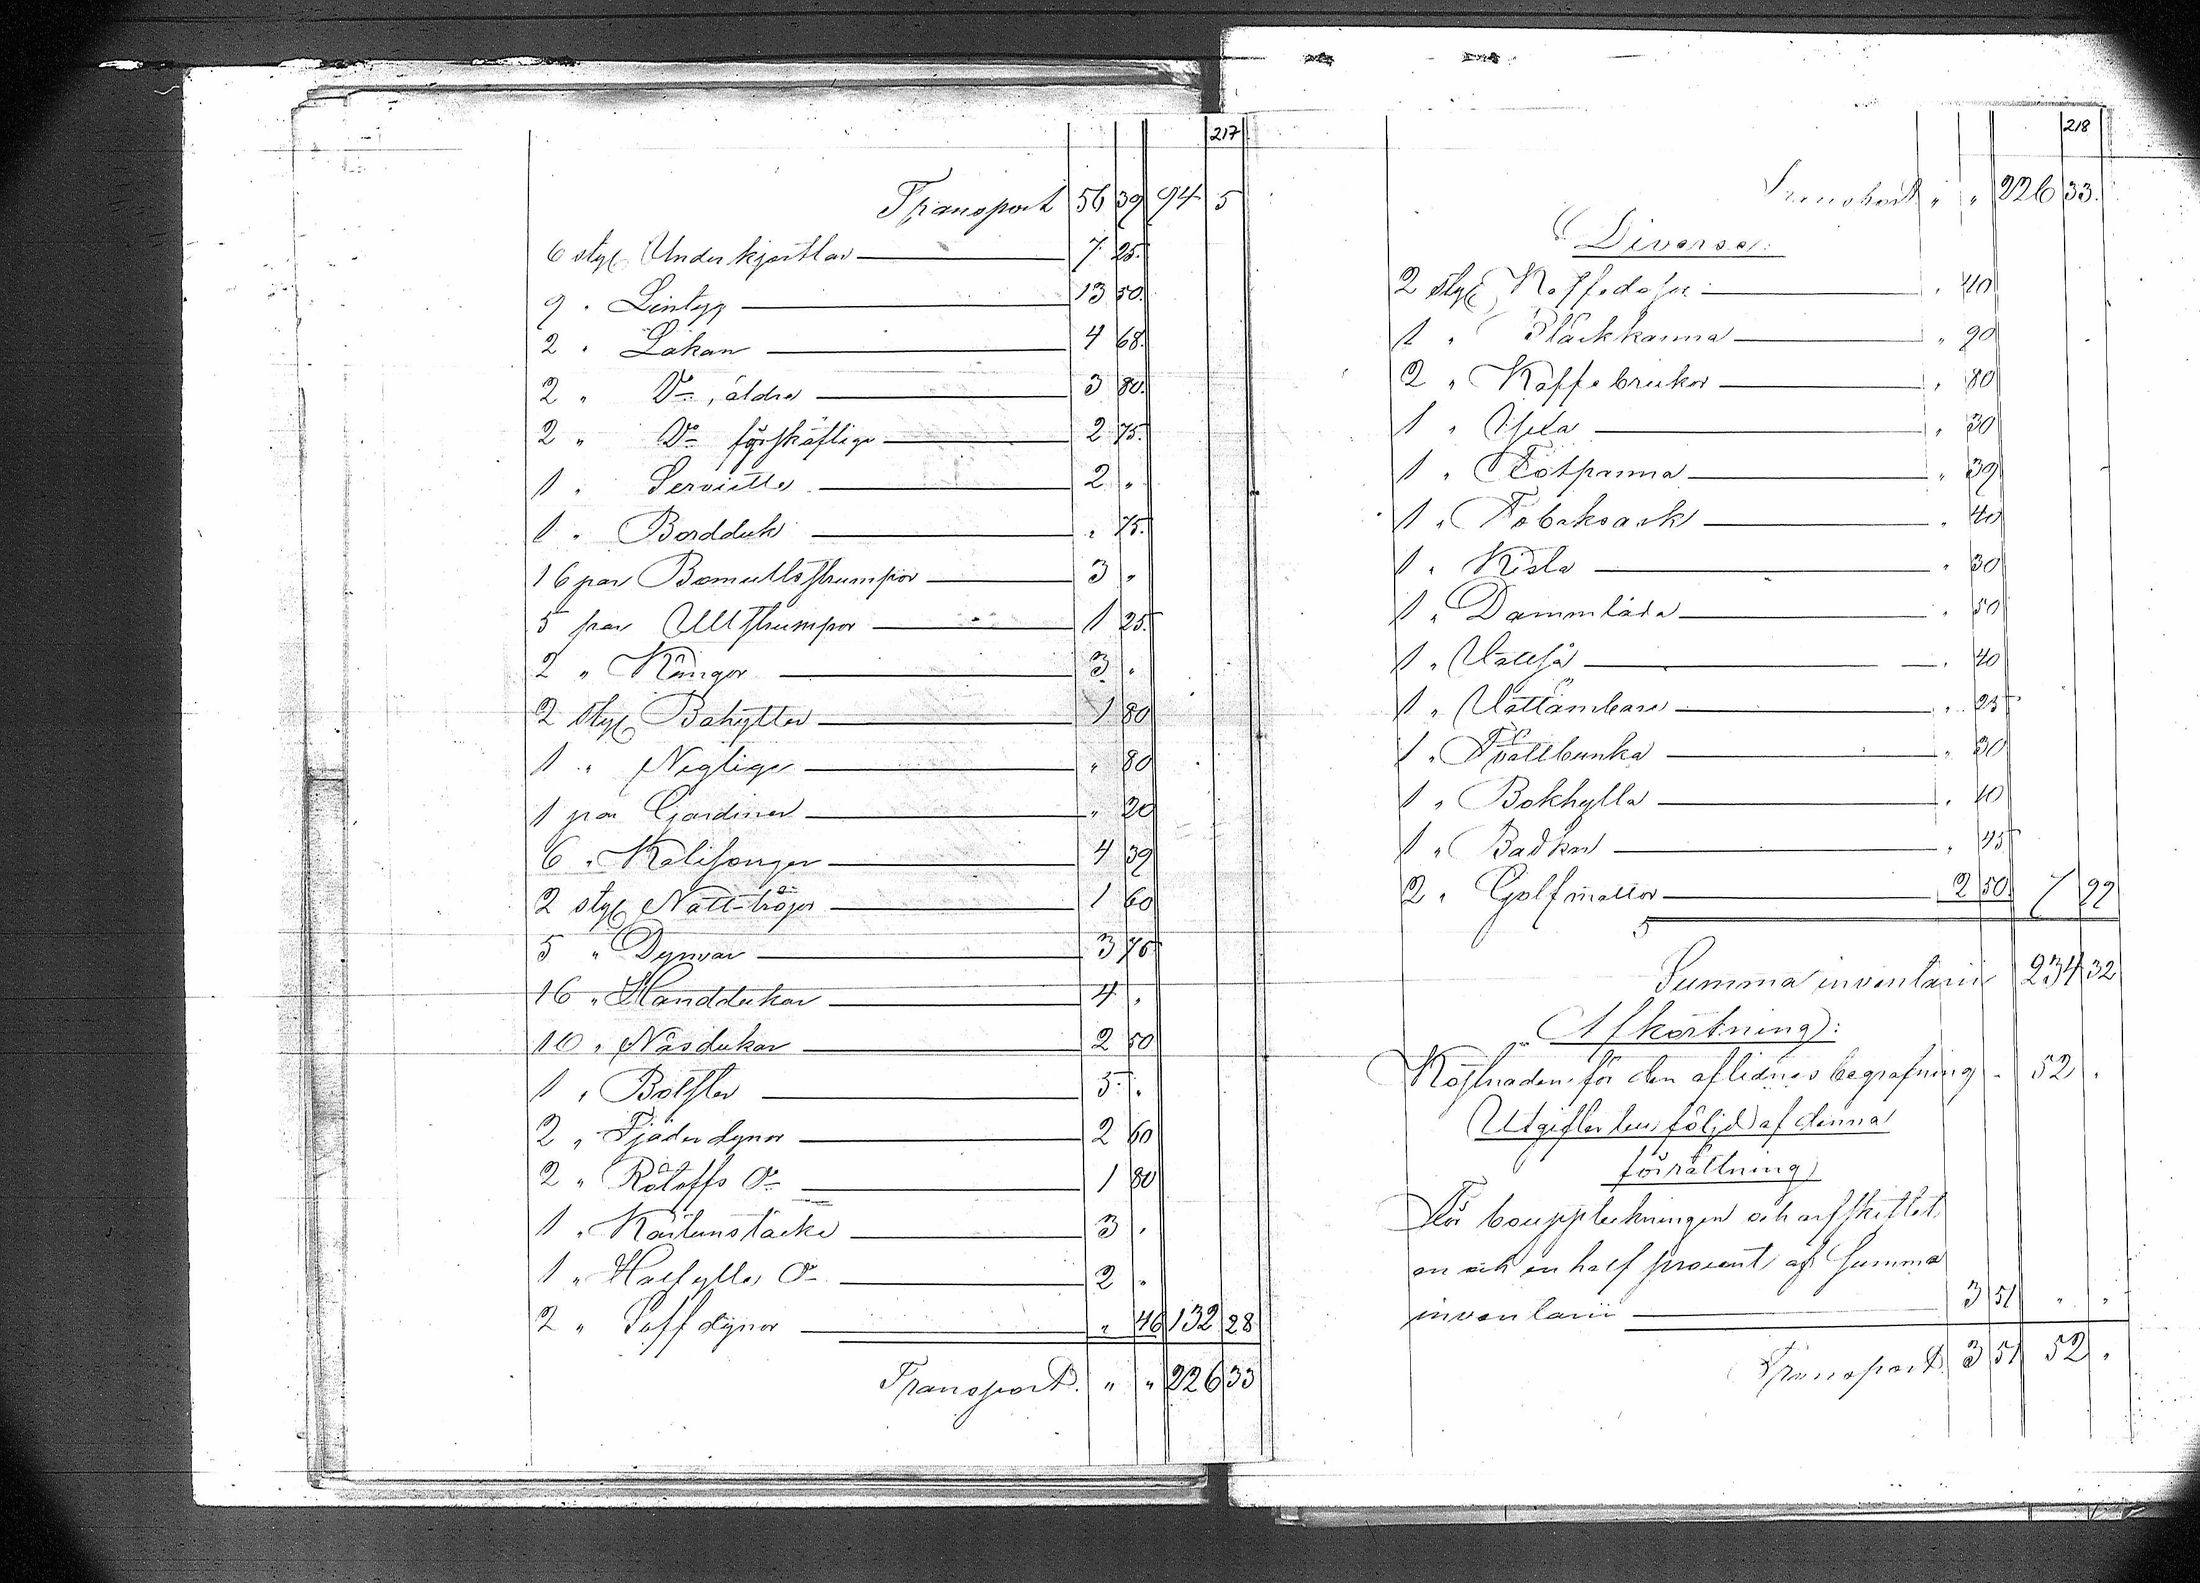 217
Transport 56 39 94 5
6 styck Underkjortlar 7 25
9 " Lintyg 13 50
2 " Lakan 4 68
2 " D:o, äldre 3 80
2 " D:o 2 75
1 " Serviette 2 "
1 " Bordduk " 75
16 par Bomullsstrumpor 3 "
5 par Ullstrumpor 1 25
2 " Kängor 3 "
2 styck Bahytter 1 80
1 " Neglige " 80
1 par Gardiner " 20
6 " Kalsonger 4 39
2 styck Natttröjor 1 60
5 " Dynvar 3 75
16 " Handdukar 4 "
10 " Näsdukar 2 50
1 " Bolster 5 "
2 " Fjäderdynor 2 60
2 " D:o 1 80
1 " 3 "
1 " Halfylle D:o 2 "
2 " Soffdynor " 46 132 28
Transport " " 226 33
218
Transport " " 226 33
Diverse:
2 styck Kaffedosor " 40
1 " Bläckkanna " 90
2 " Kaffebrickor " 80
1 " " 30
1 " " 39
1 " Tobaksask " 40
1 " Kista " 30
1 " Dammlåda " 50
1 " " 40
1 " Vattämbare " 25
1 " Tvättbunka " 30
1 " Bokhylla " 10
1 " Badkar " 45
2 " Golfmattor 2 50 7 99
Summa inventarii 234 32
Afkortning:
Kostnaden för den aflidnes begrafning " 52 "
Utgifter till följd af denna
förrättning
För bouppteckningen och arfskiftet,
en och en half procent af Summa
inventarii 3 51 " "
Transport 3 51 52 "